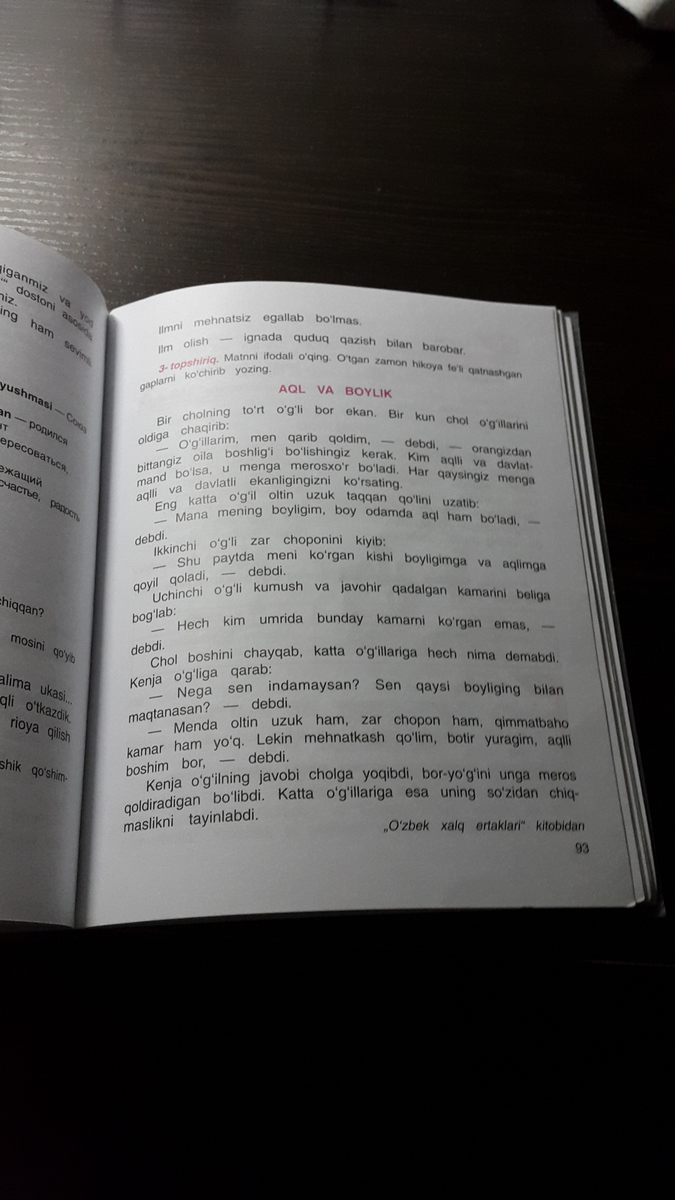 iganmiz va yog
dostoni asosida
niz.
ing ham sevimli
yushmasi — Союз
an — родился
ит
ересоваться,
ежащий
счастье, радость
chiqqan?
mosini qo‘yib
alima ukasi...
qli o‘tkazdik.
rioya qilish
shik qo‘shim-
Ilmni mehnatsiz egallab bo‘lmas.
Ilm olish — ignada quduq qazish bilan barobar.
3- topshiriq. Matnni ifodali o‘qing. O‘tgan zamon hikoya fe’li qatnashgan
gaplarni ko‘chirib yozing.
AQL VA BOYLIK
Bir cholning to‘rt o‘g‘li bor ekan. Bir kun chol o‘g‘illarini
oldiga chaqirib:
— O‘g‘illarim, men qarib qoldim, — debdi, — orangizdan
bittangiz oila boshlig‘i bo‘lishingiz kerak. Kim aqlli va davlat-
mand bo‘lsa, u menga merosxo‘r bo‘ladi. Har qaysingiz menga
aqlli va davlatli ekanligingizni ko‘rsating.
Eng katta o‘g‘il oltin uzuk taqqan qo‘lini uzatib:
— Mana mening boyligim, boy odamda aql ham bo‘ladi, —
debdi.
Ikkinchi o‘g‘li zar choponini kiyib:
— Shu paytda meni ko‘rgan kishi boyligimga va aqlimga
qoyil qoladi, — debdi.
Uchinchi o‘g‘li kumush va javohir qadalgan kamarini beliga
bog‘lab:
— Hech kim umrida bunday kamarni ko‘rgan emas, —
debdi.
Chol boshini chayqab, katta o‘g‘illariga hech nima demabdi.
Kenja o‘g‘liga qarab:
— Nega sen indamaysan? Sen qaysi boyliging bilan
maqtanasan? — debdi.
— Menda oltin uzuk ham, zar chopon ham, qimmatbaho
kamar ham yo‘q. Lekin mehnatkash qo‘lim, botir yuragim, aqlli
boshim bor, — debdi.
Kenja o‘g‘ilning javobi cholga yoqibdi, bor-yo‘g‘ini unga meros
qoldiradigan bo‘libdi. Katta o‘g‘illariga esa uning so‘zidan chiq-
maslikni tayinlabdi.
„O‘zbek xalq ertaklari“ kitobidan
93